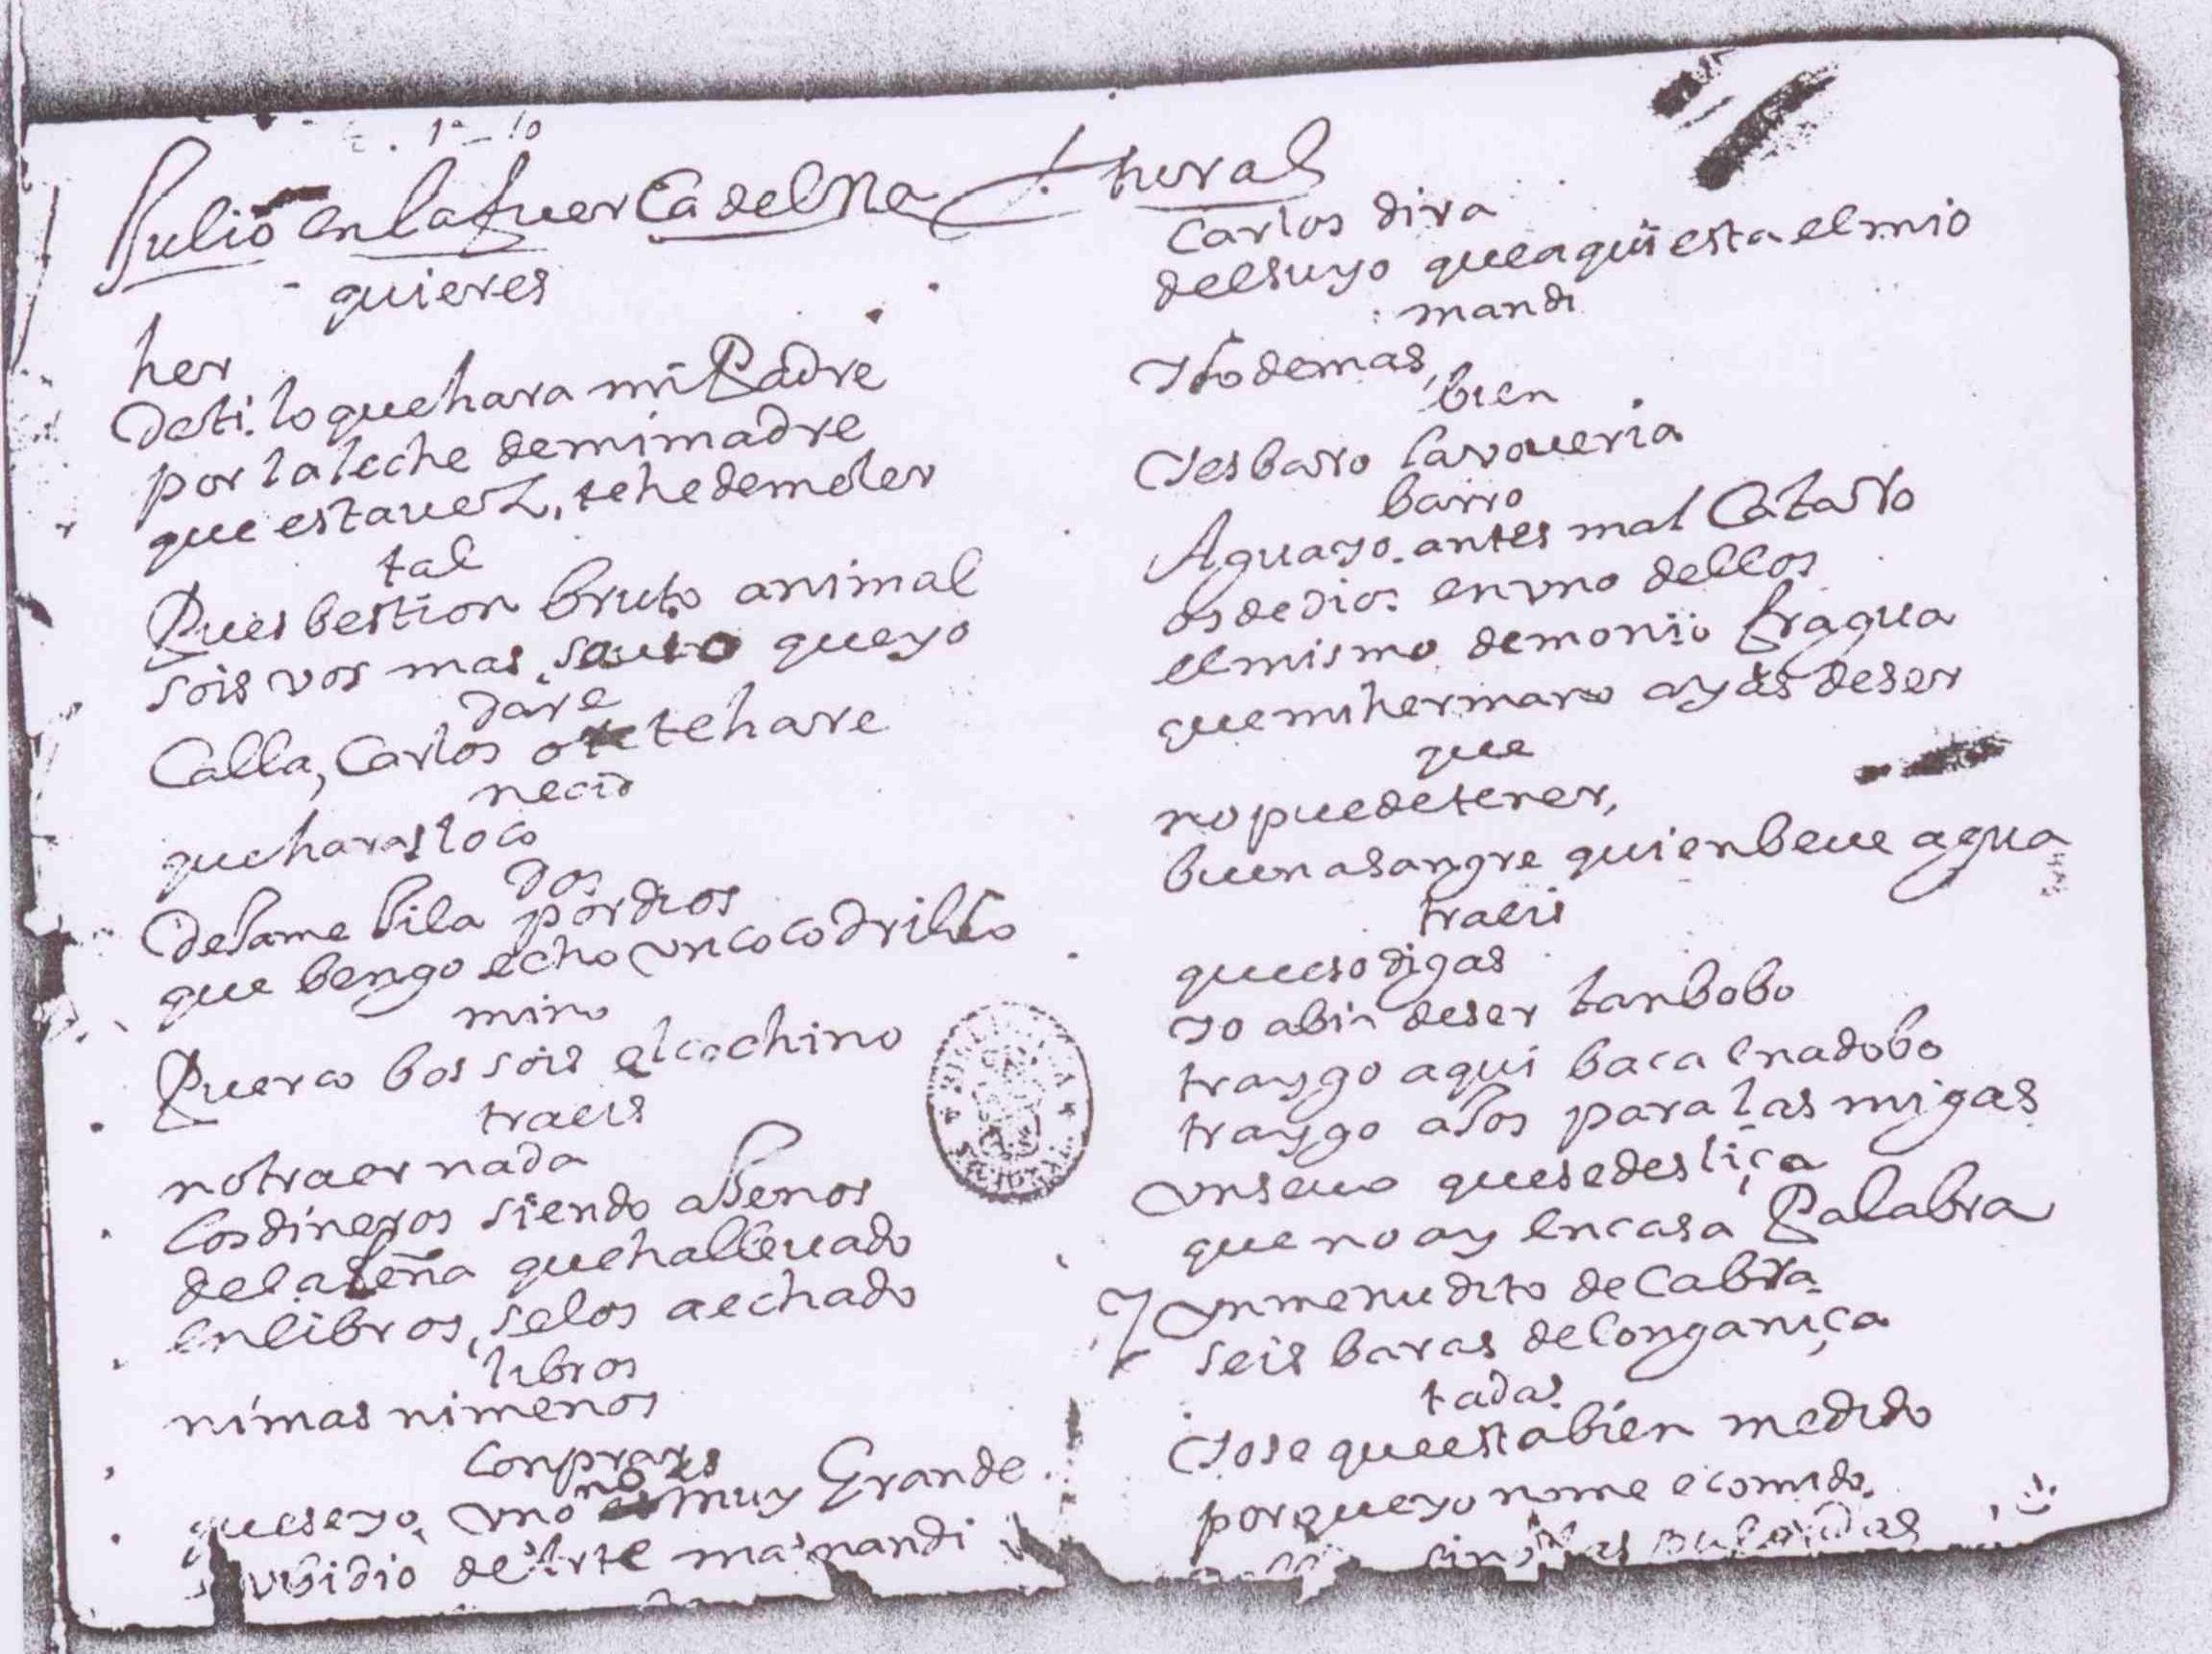 Julio en la fuerça del Na thural
quieres
her
deti. lo que hara mi Padre
por la leche demimadre
que estauez, tehedemoler
tal
Pues bestion bruto animal
sois vos mas sauio queyo
dare
Calla, Carlos o tehare
necio
queharas loco
dos
dejame bila pordios
que bengo echo un cocodrillo
mino
Puerco bos sois elcochino
traeis
notraer nada
losdineros siendo ajenos
dela leña quehalleuado
enlibros, selos aechado
libros
nimas nimenos
conprays
queseyo, uno no es muy Grande
ubidio de Arte mas nandi
Carlos dira
delsuyo queaqui esta elmio
mandi
Ylodemas,
bien
Yesbarro lavoueria
barro
Aguayo. antes mal Catarro
os dedios. enuno dellos
elmismo demonio fragua
quemihermano ayas deser
que
nopuedetener,
buenasangre quienbeue agua
traeis
queeso digas
yo abia deser tanbobo
traygo aqui baca enadobo
traygo ajos para las migas
unseuo quesedesliça
que no ay encasa Palabra
Y unmenudito de Cabra.
seis baras delonganiça
tadas
Yose queestabien medido
porqueyo nome ecomido.
sino las pulgadas